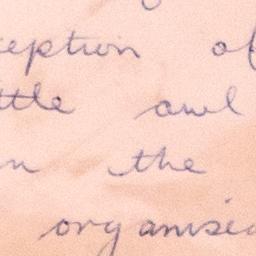 eption of
ttle awl
n the
organised